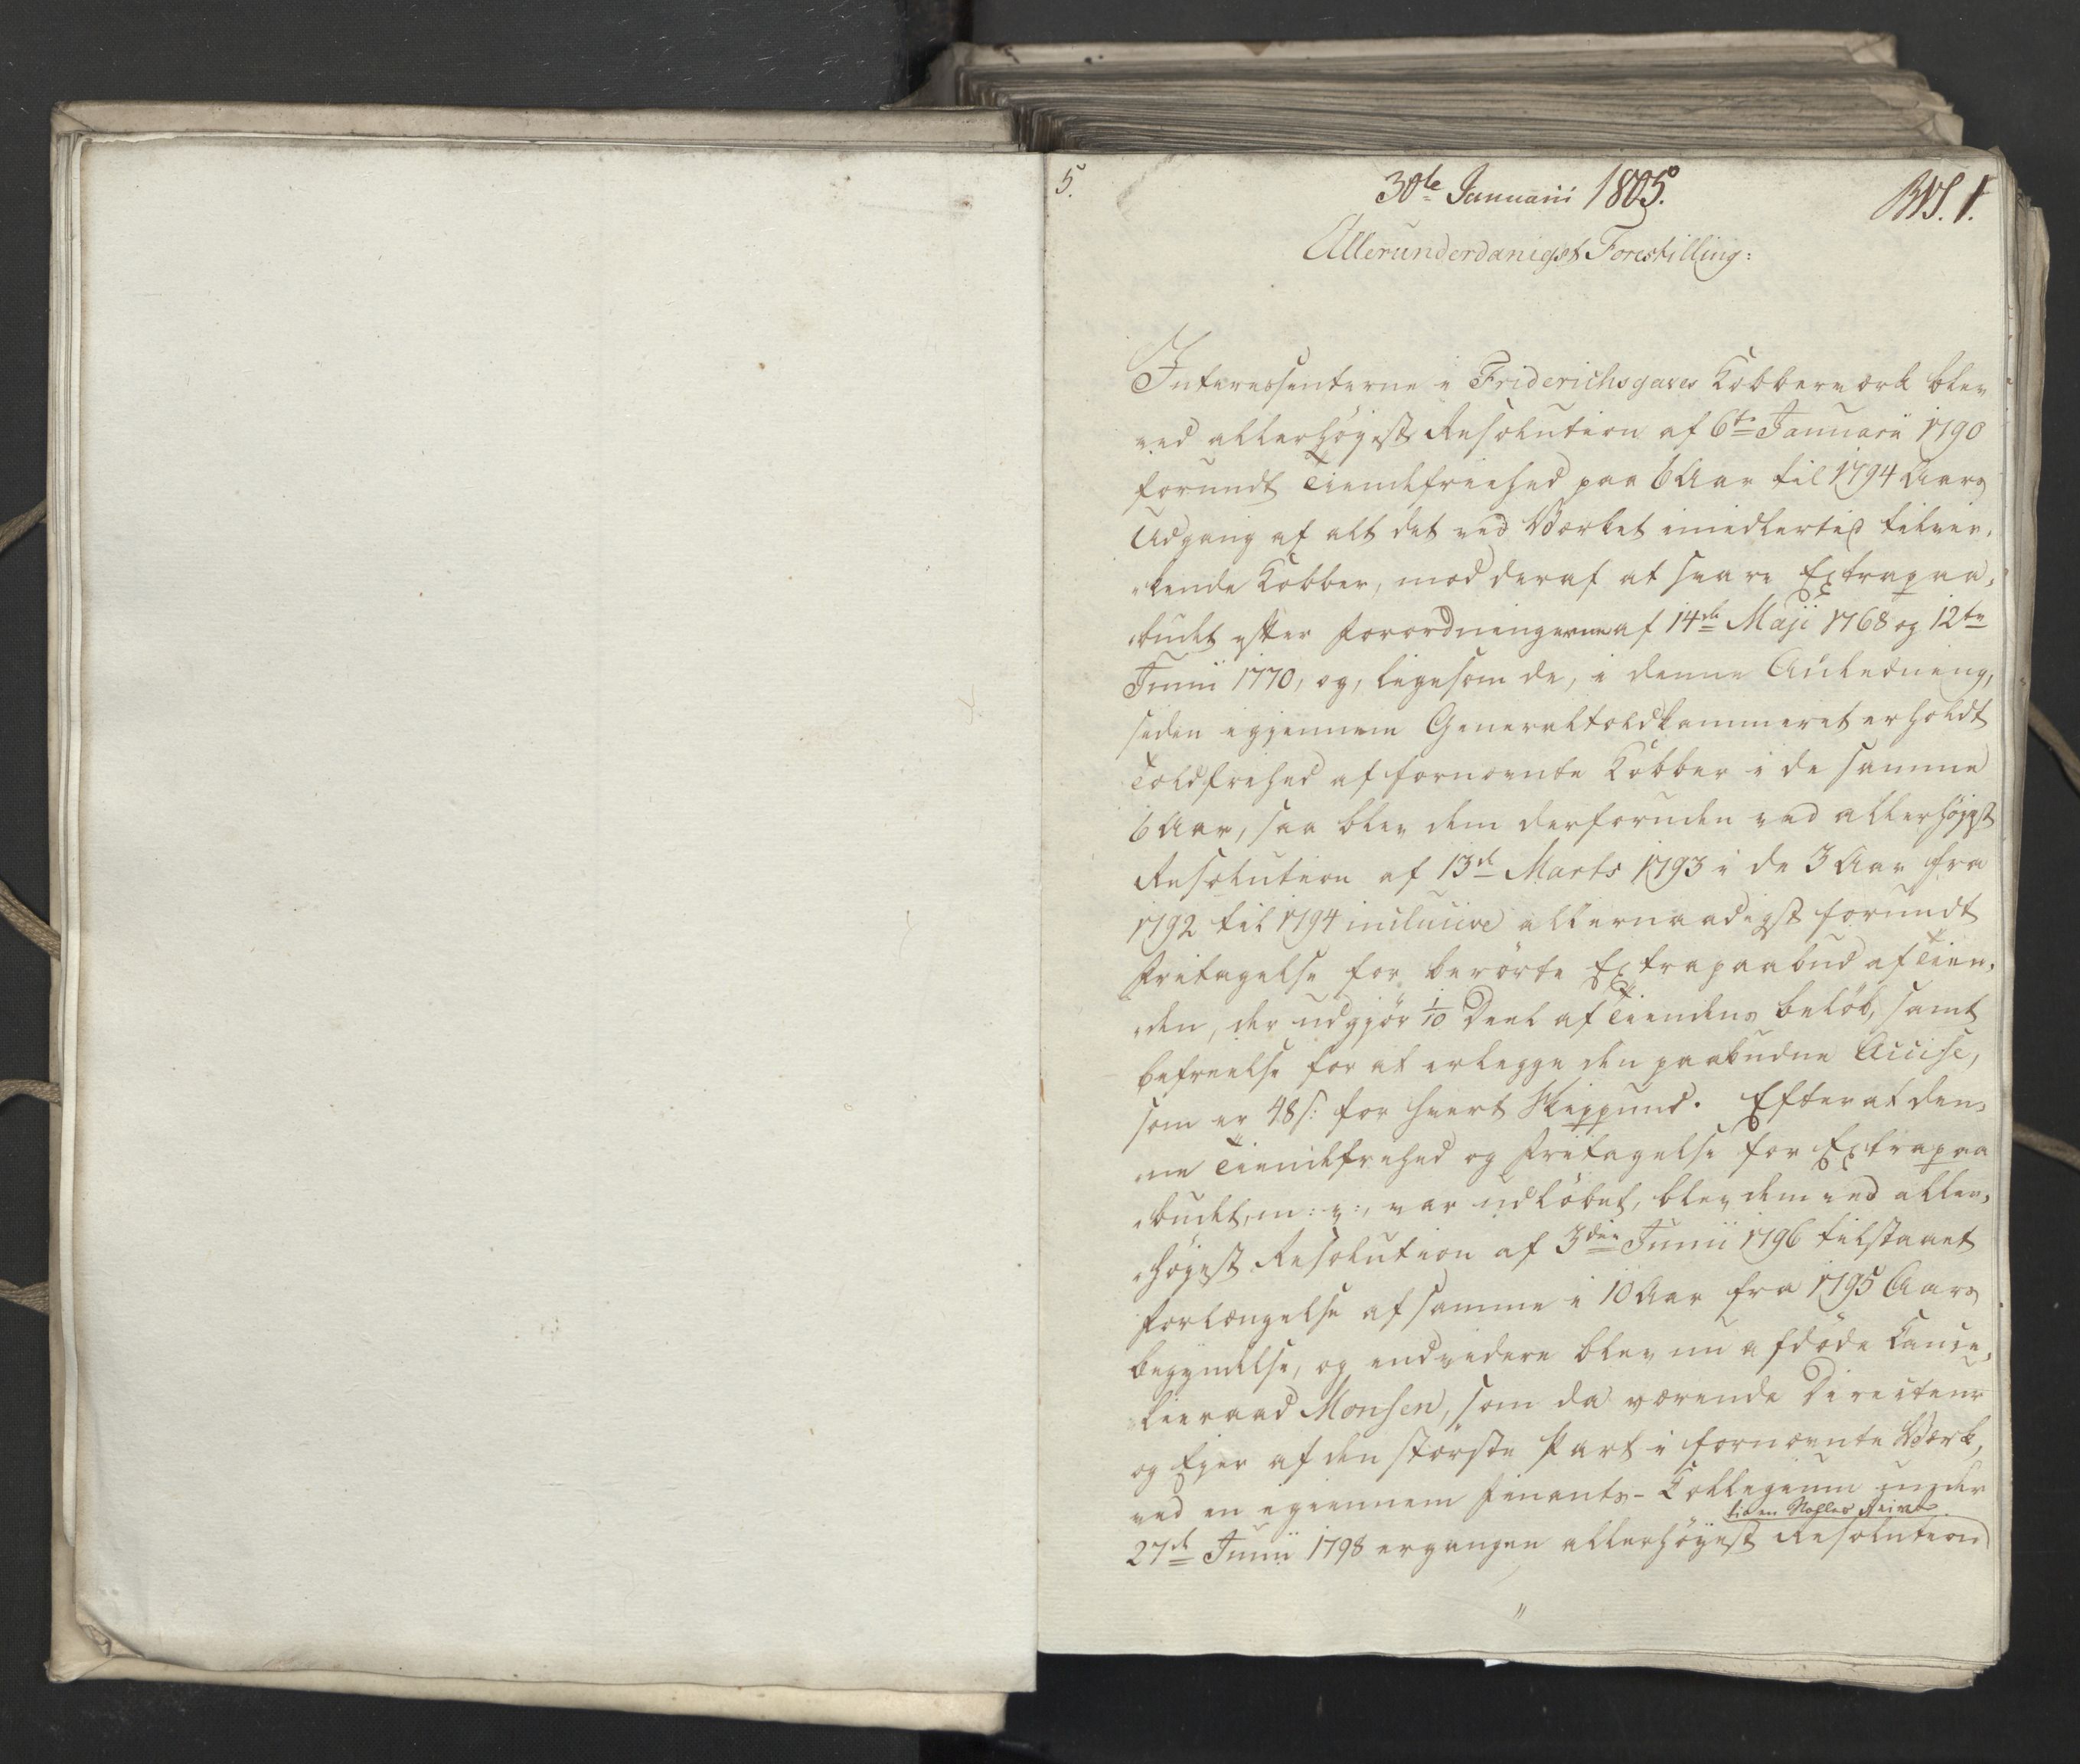 5.
30te Januarii 1805.
No. 1.
Allerunderdanigst Forestilling:
Interessenterne i Friderichsgaves Kobberværk blev
ved allerhöÿest Resolution af 6te Januarii 1790
forundt Tiendefriehed paa 6 Aar til 1794 Aars
Udgang af alt det ved Værket imidlertid tilvir,
„kende Kobber, mod deraf at svare Extrapaa,
„budet efter Forordningerne af 14de Maji 1768 og 12te
Junii 1770, og, ligesom de, i denne Anledning,
siden igjennem Generaltoldkammeret erholdt
Toldfrihed af fornævnte Kobber i de samme
6 Aar, saa blev dem derforuden ved allerhöjest
Resolution af 13de Marts 1793 i de 3 Aar fra
1792 til 1794 inclusive allernaadigst forundt
Fritagelse for berörte Extrapaabud af Tien,
„den, der udgjör 1/10 Deel af Tiendens belöb, samt
befrielse for at erlegge den paabudne Accise,
som er 48 s: for hvert Skippund. Efter at den,
„ne Tiendefrihed og Fritagelse for Extrapaa
„budet, m: v:, var udlöbet, blev dem ved aller,
„höyest Resolution af 3die Junii 1796 tilstaaet
Forlængelse af samme i 10 Aar fra 1795 Aars
begyndelse, og endvidere blev nu afdöde Cance,
„lieraad Monsen, som da værende Directeur
og Ejer af den störste Part i fornævnte Værk,
ved en igiennem Finants-Collegium under
27de Junii 1798 ergangen allerhöÿest Resolution